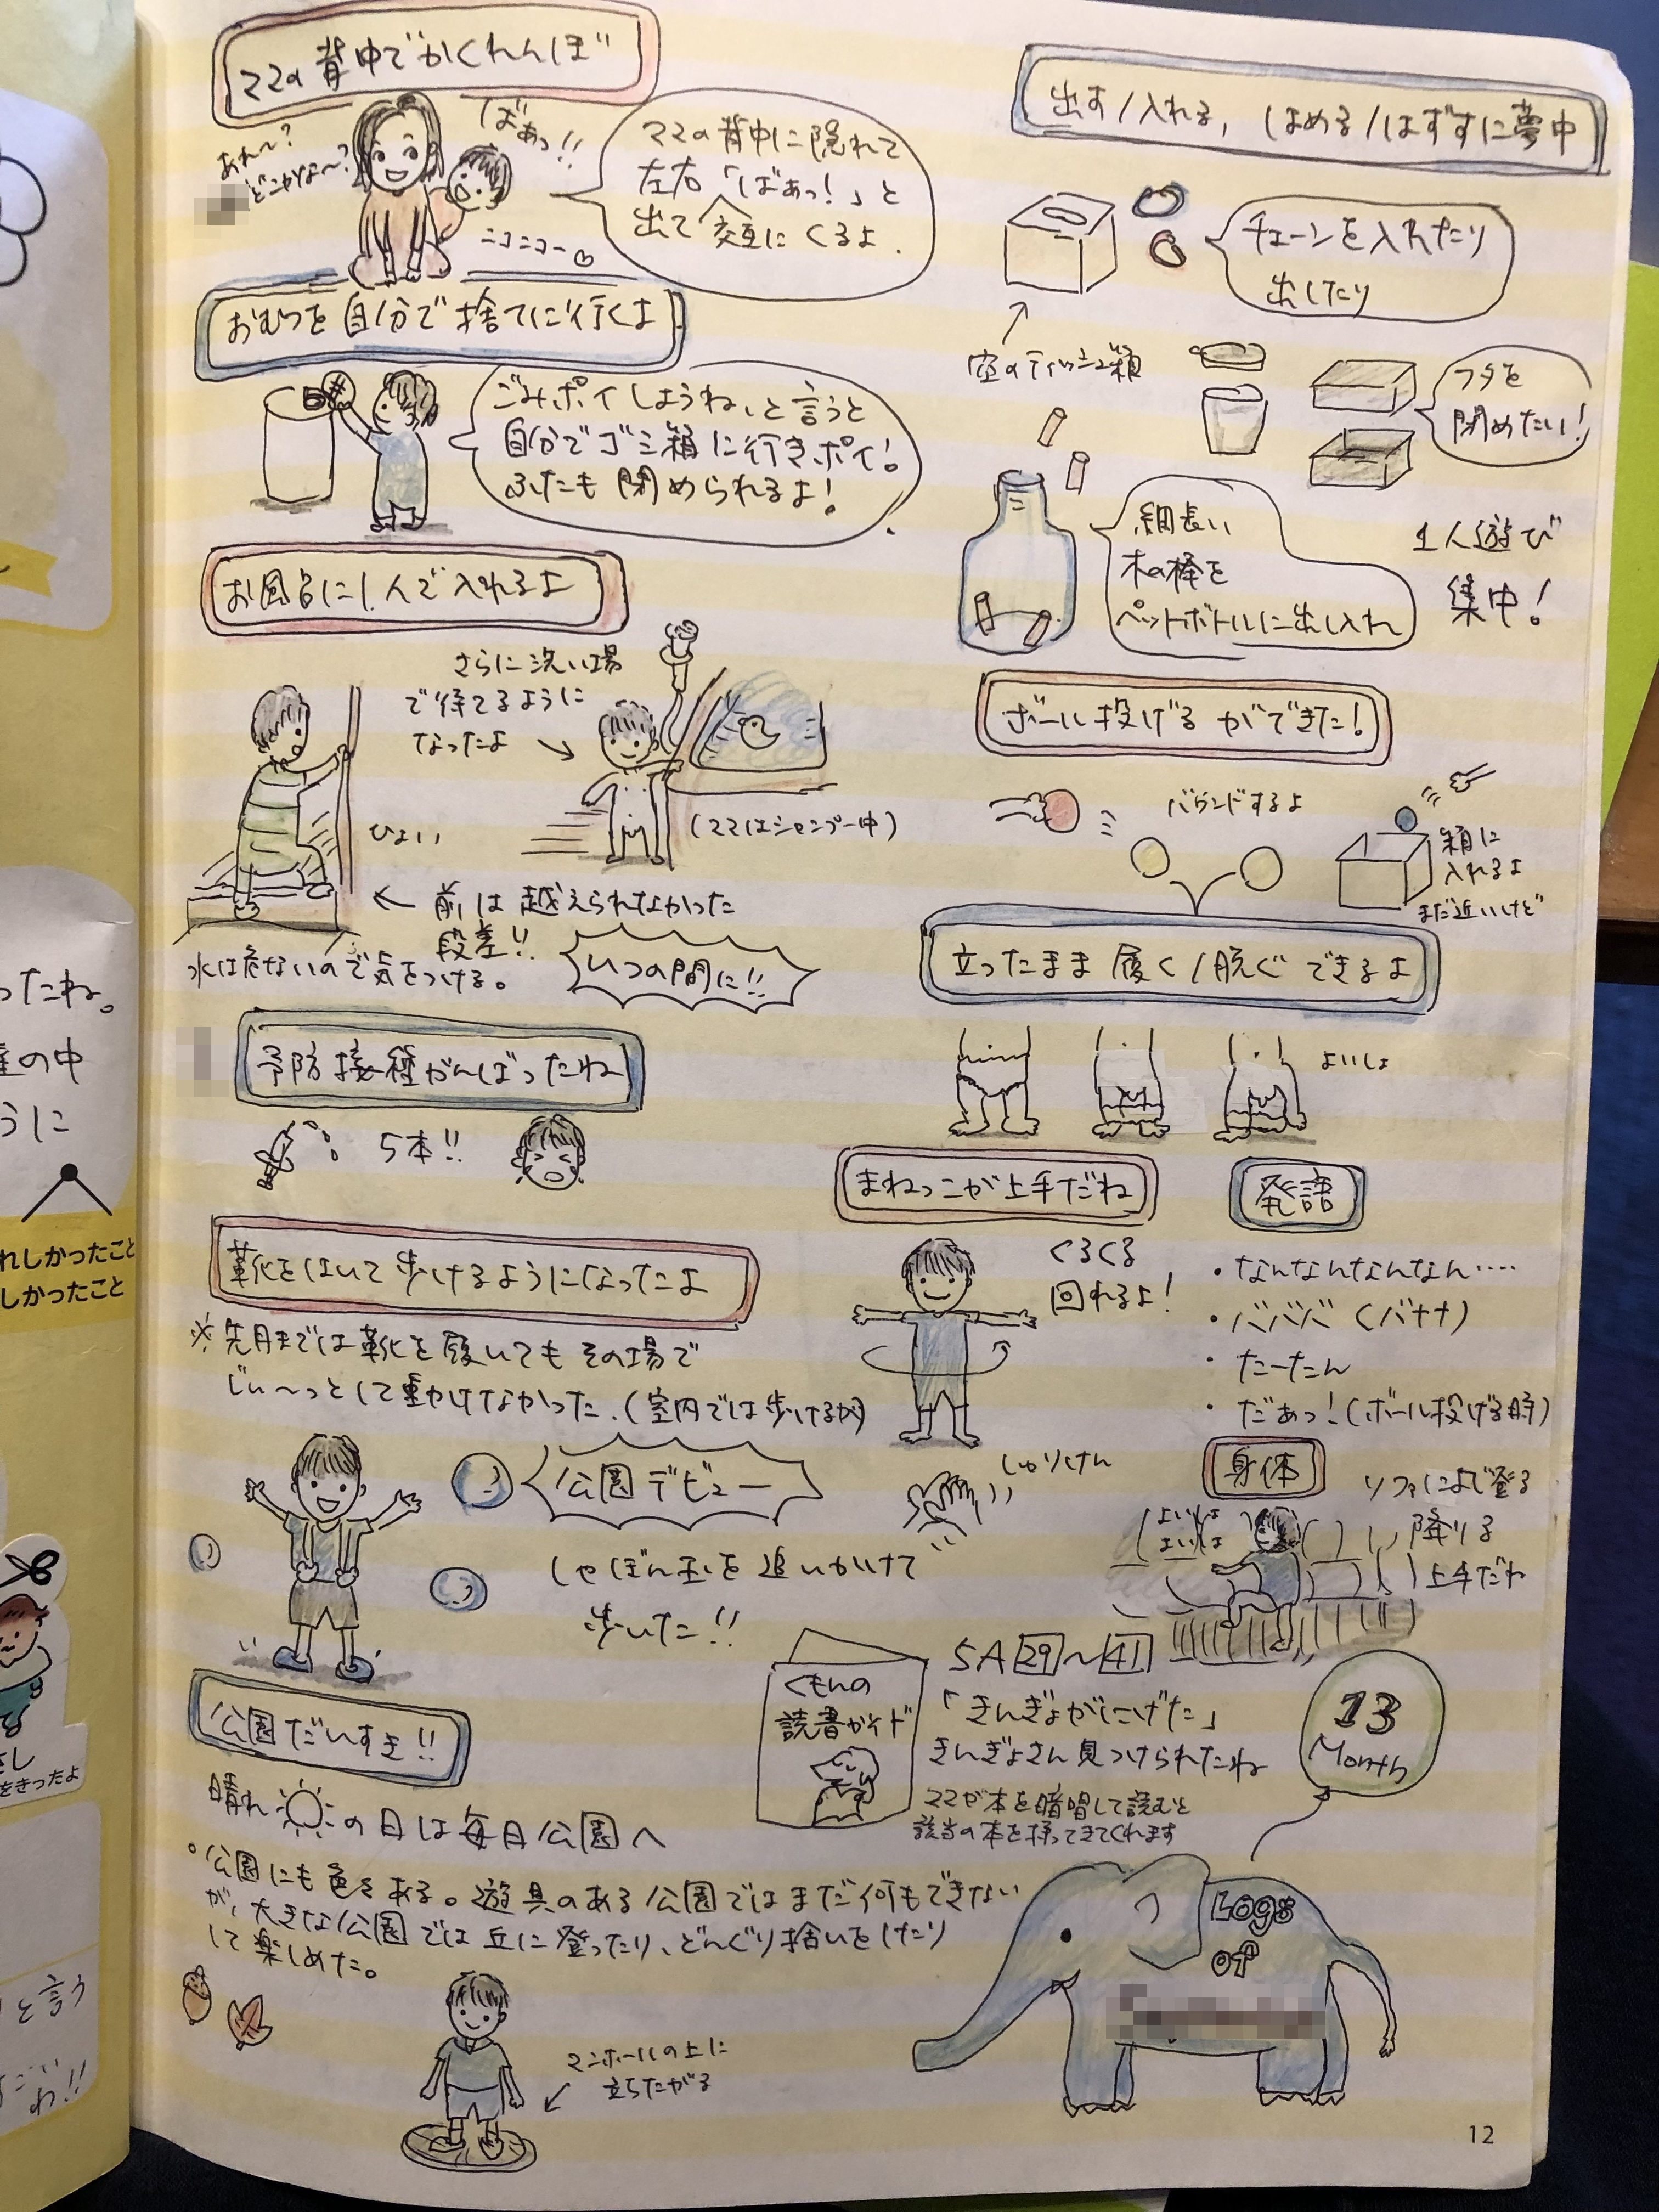 ママの背中でかくれんぼ
あれ〜?
どこかな〜?
ばあっ!!
ニコニコー
ママの背中に隠れて
左右「ばあっ!」と
出て交互にくるよ.
おむつを自分で捨てに行くよ
ごみポイしようね、と言うと
自分でゴミ箱に行きポイ!
ふたも閉められるよ!
お風呂に1人で入れるよ
さらに洗い場
で待てるように
なったよ
(ママはシャンプー中)
ひょい
← 前は越えられなかった
段差!!
水は危ないので気をつける。
いつの間に!!
予防接種がんばったね
5本!!
靴をはいて歩けるようになったよ
※先月までは靴を履いてもその場で
じぃ〜っとして動かけなかった.(室内では歩けるが)
公園デビュー
しゃぼん玉を追いかけて
歩いた!!
公園だいすき!!
晴れの日は毎日公園へ
公園にも色々ある。遊具のある公園ではまだ何もできない
が、大きな公園では丘に登ったり、どんぐり拾いをしたり
して楽しめた。
マンホールの上に
立ちたがる
出す/入れる, はめる/はずすに夢中
チェーンを入れたり
出したり
空のティッシュ箱
フタを
閉めたい!
細長い
木の棒を
ペットボトルに出し入れ
1人遊び
集中!
ボール投げるができた!
バウンドするよ
箱に
入れるよ
まだ近いけど
立ったまま履く/脱ぐできるよ
よいしょ
まねっこが上手だね
くるくる
回れるよ!
しゅりけん
発語
・なんなんなんなん‥‥
・バババ(バナナ)
・たーたん
・だあっ!(ボール投げる時)
身体
ソファによじ登る
降りる
上手だね
よいしょ
よいしょ
くもんの
読書ガイド
5A 29〜41
「きんぎょがにげた」
きんぎょさん見つけられたね
ママが本を暗唱して読むと
該当の本を持ってきてくれます
13
Month
Logs
of
12
ったね。
の中
うに
れしかったこと
しかったこと
さし
をきったよ
と言う
すごい
わ!!